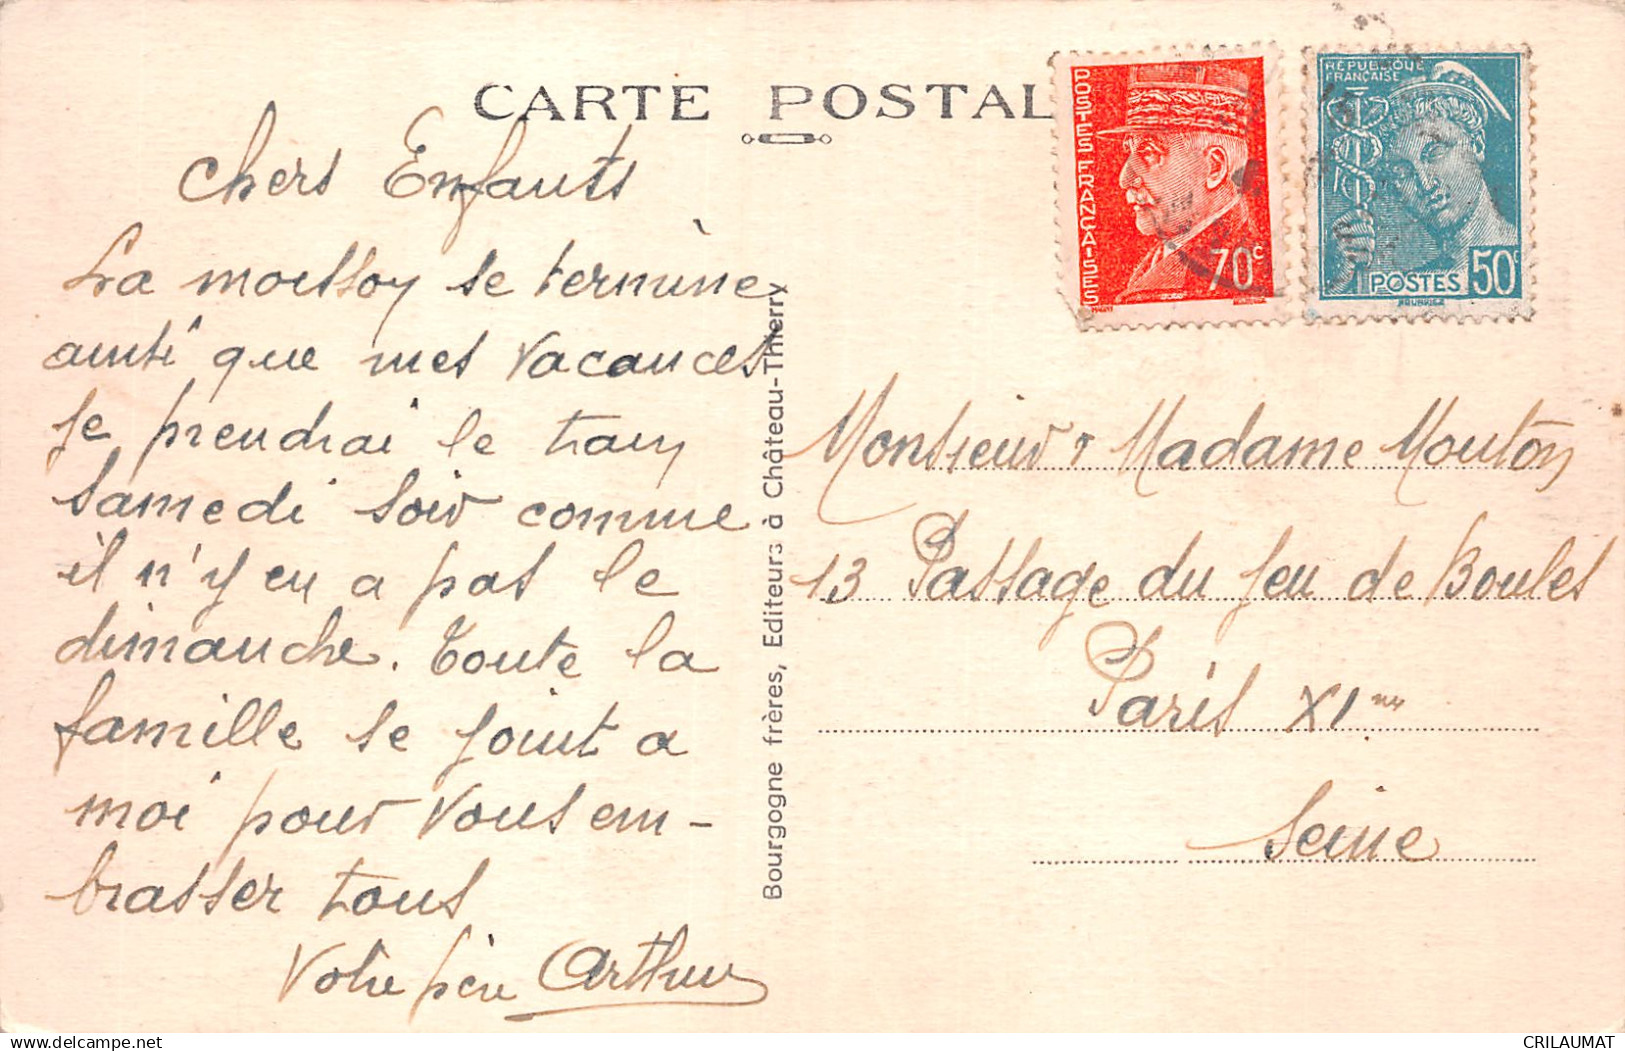 CARTE POSTAL
Chers Enfants
La moisson se termine
ainsi que mes vacances
je prendrai le train
samedi soir comme
il n'y en a pas le
dimanche. Toute la
famille se joint a
moi pour vous em-
brasser tous
Votre père Arthur
Bourgogne frères, Editeurs à Château-Thierry
POSTES FRANÇAISES
70c
RÉPUBLIQUE
FRANÇAISE
POSTES 50c
Monsieur & Madame Mouton
13 Passage du Jeu de Boules
Paris XIme
Seine
www.delcampe.net
CRILAUMAT